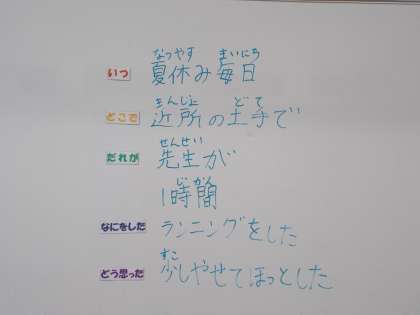 なつやす まいにち
いつ 夏休み毎日
きんじょ どて
どこで 近所の土手で
せんせい
だれが 先生が
じかん
1時間
なにをした ランニングをした
すこ
どう思った 少しやせてほっとした